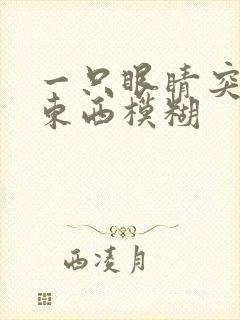 一只眼睛突
东西模糊
西凌月